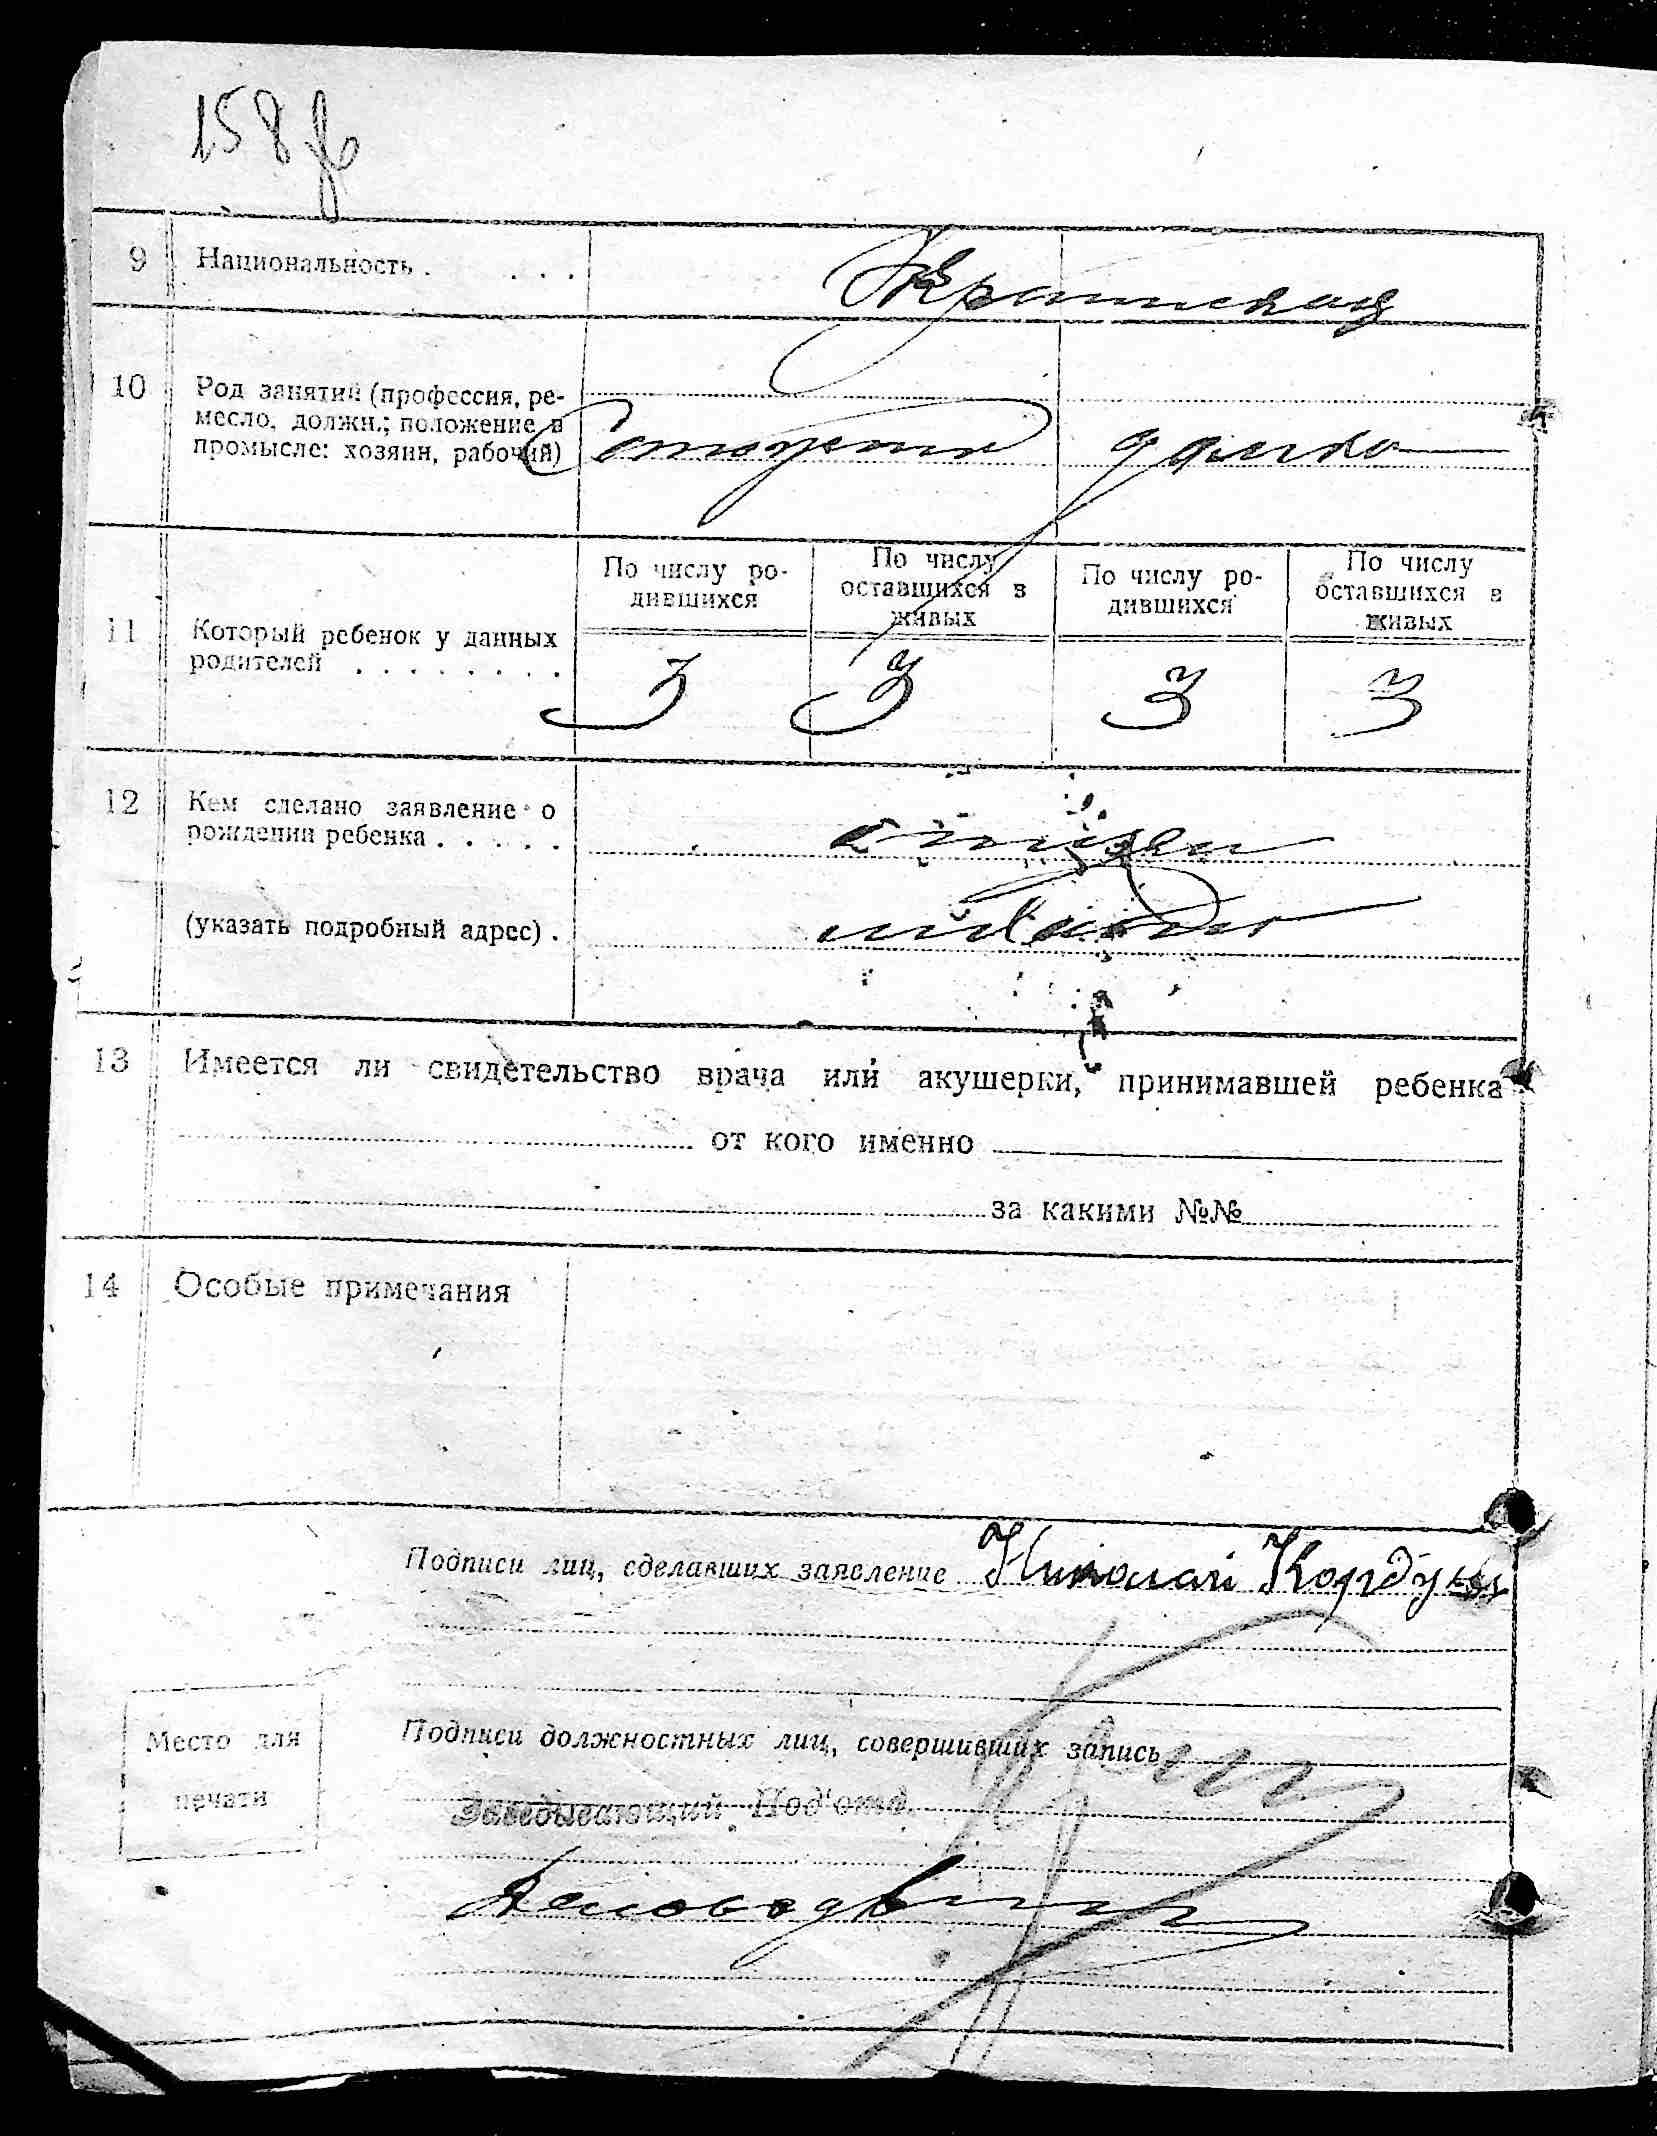 158
9 Национальность . . . . Украинская
10 Род занятий (профессия, ре-
месло, должн.; положение в
промысле: хозяин, рабочий)
11 Который ребенок у данных
родителей . . . . . . . .
По числу ро-
дившихся
По числу
оставшихся в
живых
По числу ро-
дившихся
По числу
оставшихся в
живых
3 3 3 3
12 Кем сделано заявление о
рождении ребенка . . . . .
(указать подробный адрес) .
13 Имеется ли свидетельство врача или акушерки, принимавшей ребенка
от кого именно
за какими №№
14 Особые примечания
Подписи лиц, сделавших заявление Николай Кордун
Место для
печати
Подписи должностных лиц, совершивших запись
Заведывающий Под'отд.
Делопроизв